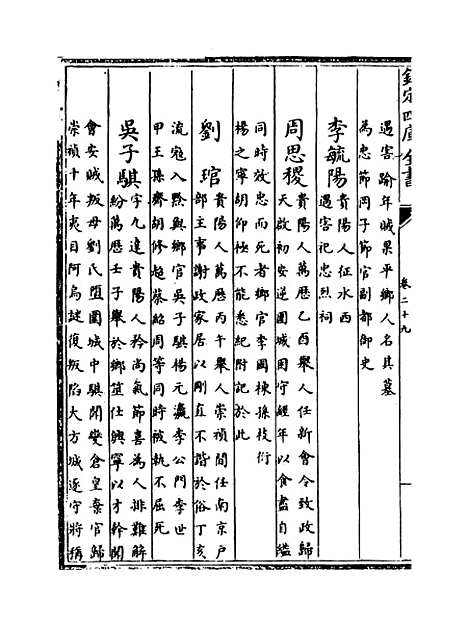 欽定四庫全書
卷二十九
遇害踰年賊果平鄉人名其墓
為忠節岡子節官副都御史
李毓陽貴陽人征水西
遇害祀忠烈祠
周思稷貴陽人萬歷己酉舉人任新會令致政歸
天啟初安逆圍城困守經年以食盡自縊
同時效忠而死者鄉官李國棟孫枝衍
楊之寧胡仰極不能悉紀附記於此
劉琯貴陽人萬歷丙午舉人崇禎間任南京戶
部主事謝政家居以剛直不諧於俗丁亥
流寇入黔與鄉官吳子騏楊元瀛李公門李世
甲王孫齋胡修趙蔡紹周等同時被執不屈死
吳子騏字九逵貴陽人矜尚氣節喜為人排難解
紛萬歷壬子舉於鄉筮仕興寧以才幹聞
會安賊叛母劉氏塱圍城中騏聞變倉皇棄官歸
崇禎十年夷目阿烏謎復叛陷大方城逐守將稱